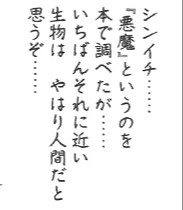 シンイチ……
『悪魔』というのを
本で調べたが……
いちばんそれに近い
生物は　やはり人間だと
思うぞ……